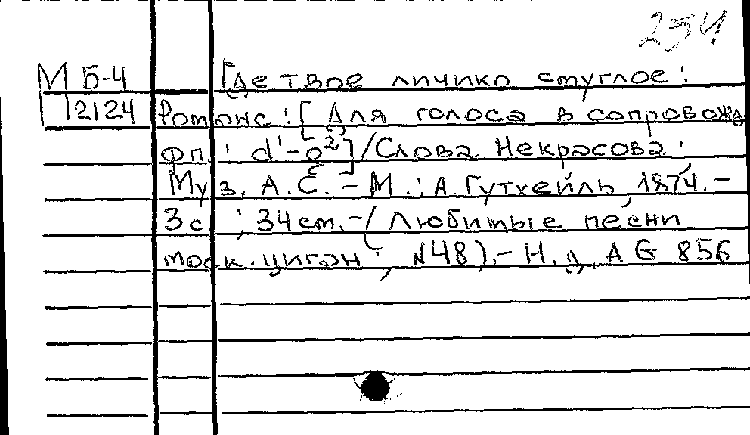 254
М Б-4 Где твое личико смуглое :
12124 Романс : [ Для голоса в сопровожд.
фп. : d¹-g²] / Слова Некрасова ;
Муз. А.С. – М. : А. Гутхейль, 1874. –
3 с. ; 34 см. – ( Любимые песни
моск. цыган ; N48 ). – Н. д. A G 856